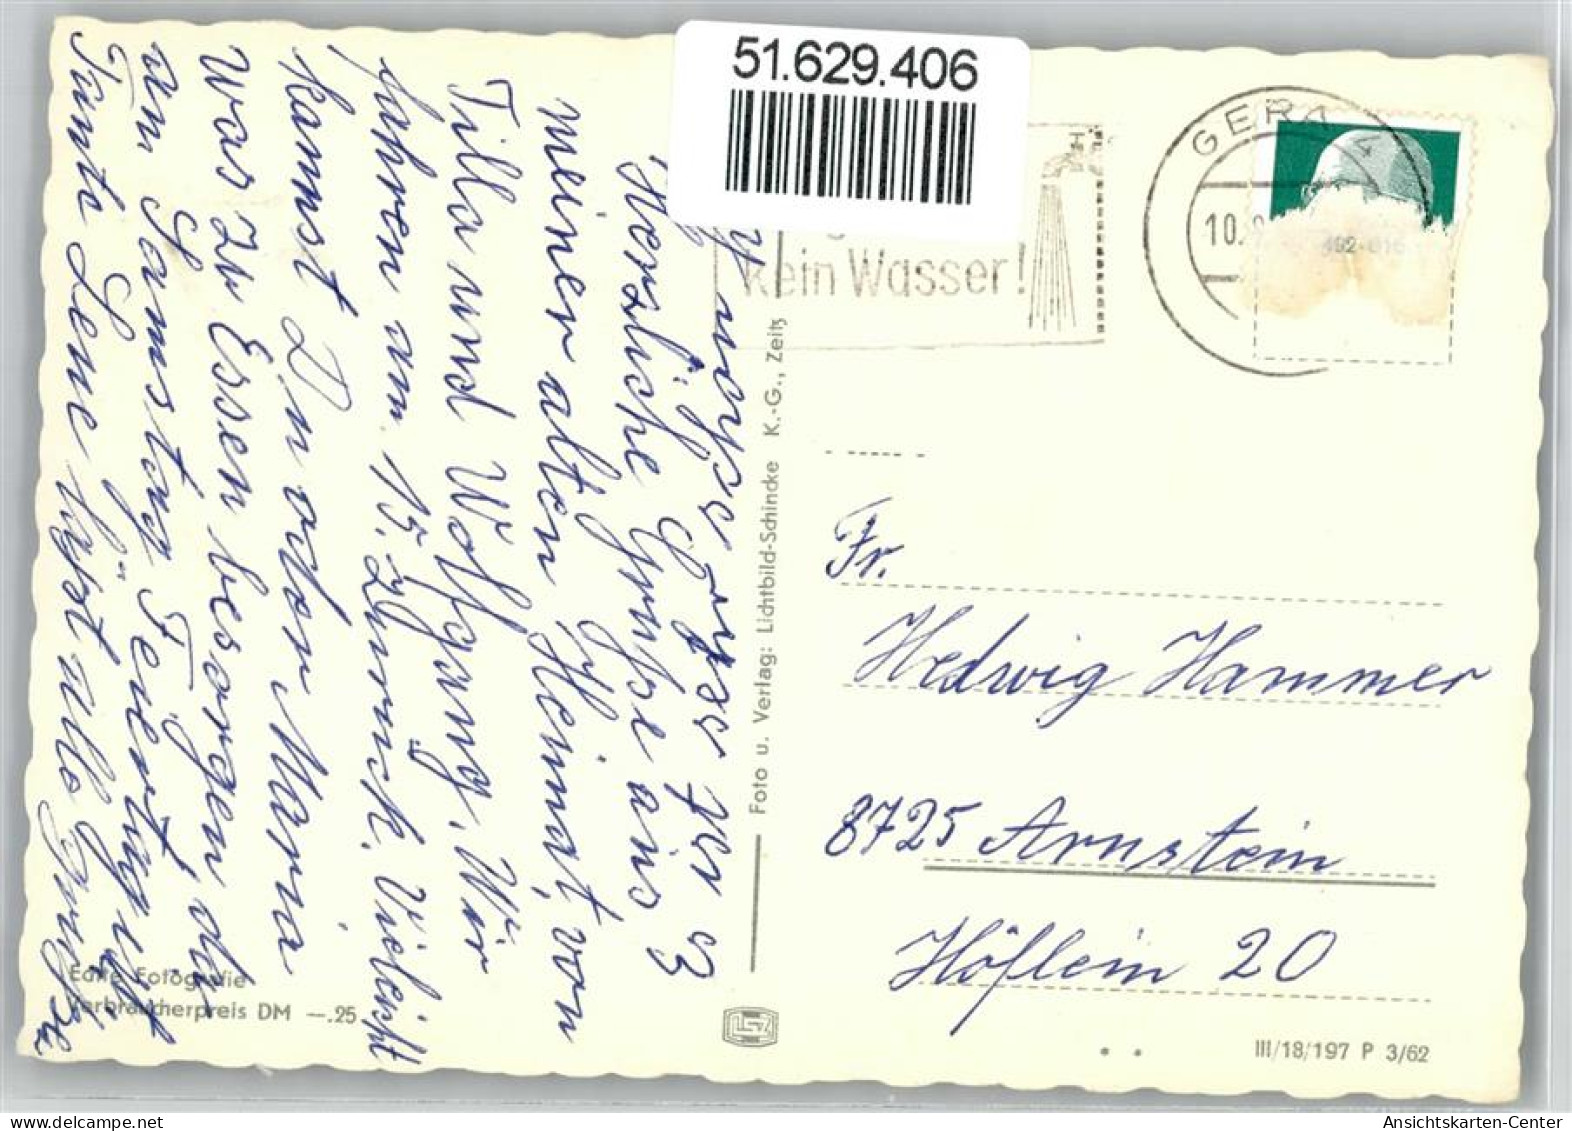 51.629.406
GERA 4
10.
Kein Wasser!
492-616
Herzliche Grüße aus
meiner alten Heimat, von
Tilla und Wolfgang. Wir
fahren am 15. zurück. Vielleicht
kannst Du oder Maria
was zu Essen besorgen da
am Samstag Feiertag ist
Tante Lene läßt alle grüßen
Foto u. Verlag: Lichtbild-Schincke K.-G., Zeitz
Fr.
Hedwig Hammer
8725 Arnstein
Höflein 20
Echte Fotografie
Verbraucherpreis DM —.25
III/18/197 P 3/62
Ansichtskarten-Center